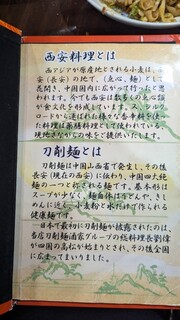 西安料理とは
西アジアが原産地とされる小麦は、西
安(長安)の地で、(点心、麺)として
花開き、中国国内に広がって行ったと思
われます。今でも西安は数多くの点心類
が食文化を形成しています。又、シルクロ
ードから運ばれた様々な香辛料を使っ
た料理は薬膳料理として使われている、
現地さながらの味をご提供いたします。
刀削麺とは
刀削麺は中国山西省で発生し、その後
長安(現在の西安)に伝わり、中国四大純
麺の一つと称される麺です。基本形は
スープが少なく、麺自体はうどんや、きし
めんに近く、小麦粉と水だけで作られる
健康麺です。
日本で最初に刀削麺が披露されたのは、
各店刀削麺酒家グループの総料理長劉偉
が四国の高松が始まりとされ、その後全国
に広まってまいりました。